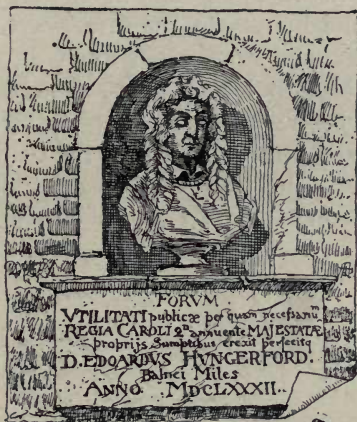 FORVM
VTILITATI publicæ per quam necessariũ
REGIA CAROLI 2di annuente MAJESTATE
proprijs Sumptibus erexit perfecitq
D. EDOARDVS HVNGERFORD.
Balnei Miles
ANNO. MDCLXXXII..